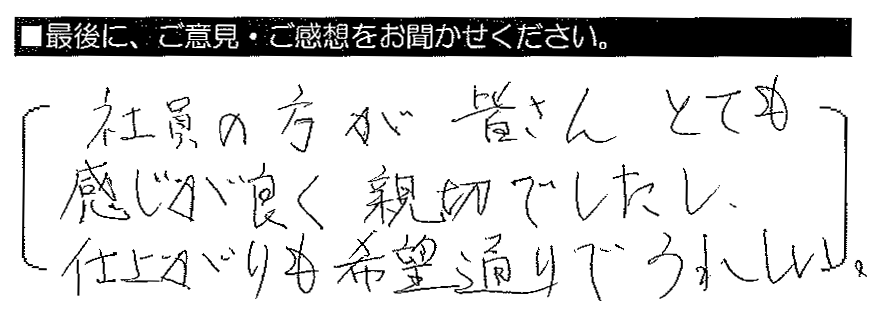 ■最後に、ご意見・ご感想をお聞かせください。
社員の方が 皆さん とても
感じが良く 親切でしたし、
仕上がりも希望通りで うれしい。